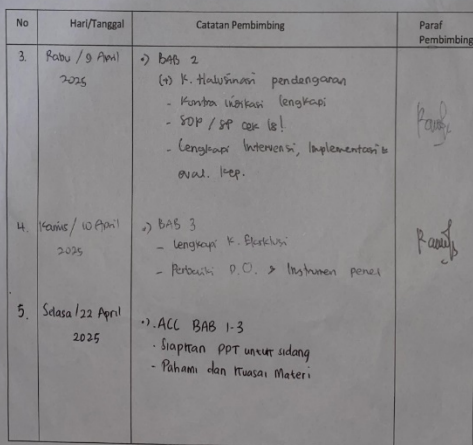 No Hari/Tanggal Catatan Pembimbing Paraf Pembimbing
3. Rabu / 9 April 2025
•) BAB 2
(+) K. Halusinasi pendengaran
- Kontra indikasi lengkapi
- SOP / SP cek lg!
- Lengkapi Intervensi, Implementasi &
eval. kep.
4. Kamis / 10 April 2025
•) BAB 3
- Lengkapi K. Eksklusi
- Perbaiki D.O. > Instrumen penel
5. Selasa / 22 April 2025
•). ACC BAB 1-3
- Siapkan PPT untuk sidang
- Pahami dan Kuasai Materi